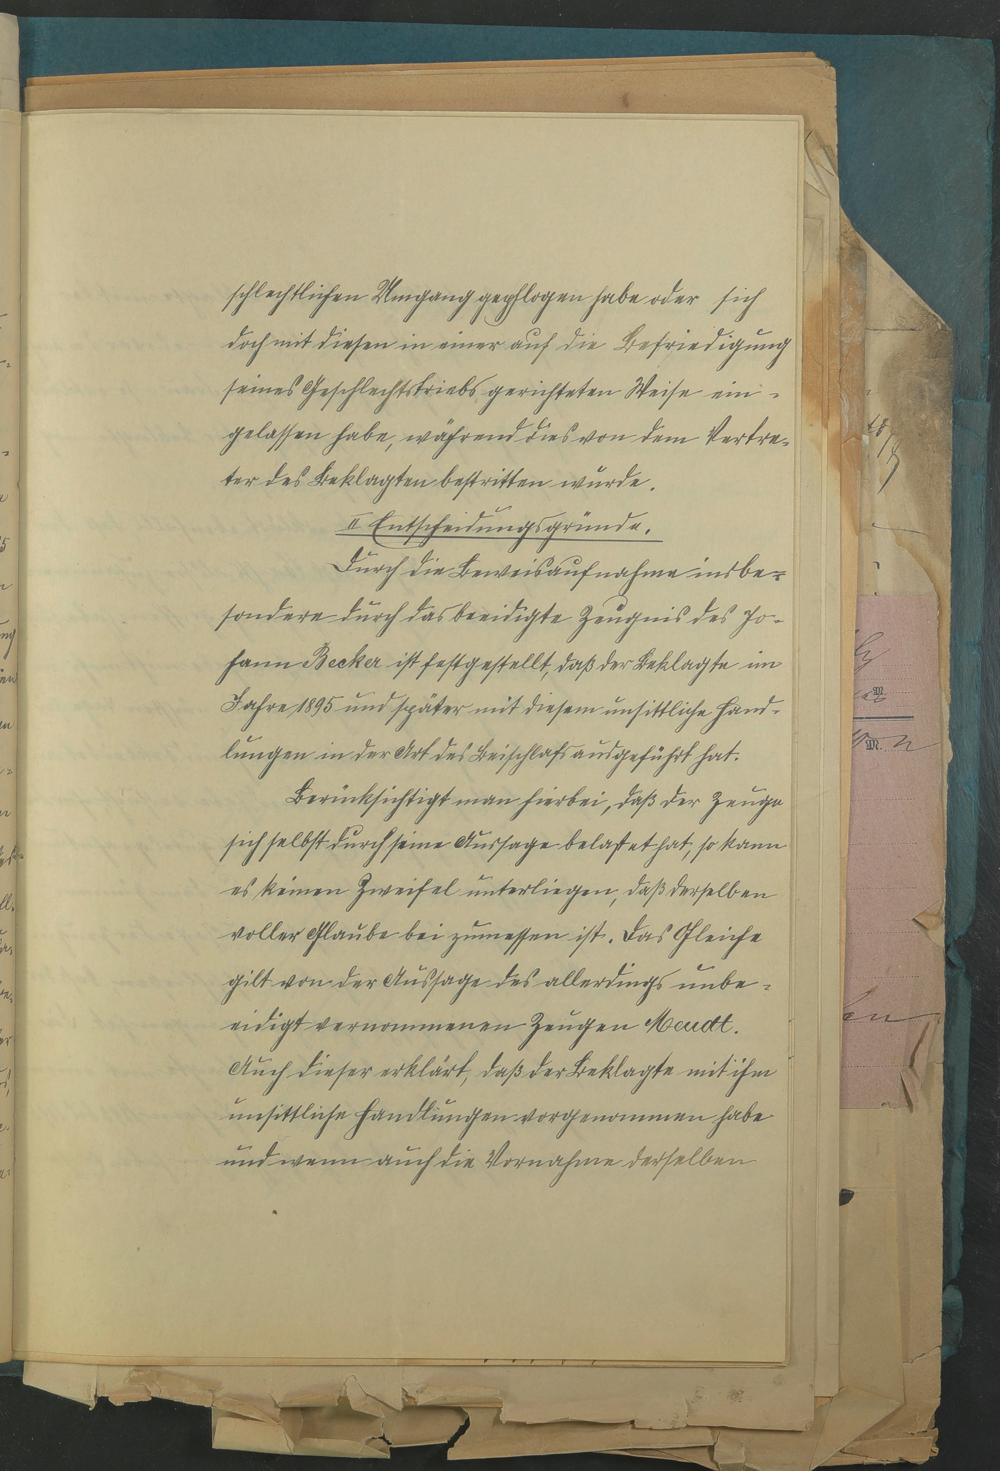 schlechtlichen Umgang gepflogen habe oder sich
doch mit diesen in einer auf die Befriedigung
seines Geschlechtstriebs gerichteten Weise ein-
gelassen habe, während dies von dem Vertre-
ter des Beklagten bestritten wurde.
II Entscheidungsgründe.
Durch die Beweisaufnahme insbe-
sondere durch das beeidigte Zeugnis des Jo-
hann Becker ist festgestellt, daß der Beklagte im
Jahre 1895 und später mit diesem unsittliche Hand-
lungen in der Art des Beischlafs ausgeführt hat.
Berücksichtigt man hierbei, daß der Zeuge
sich selbst durch seine Aussage belastet hat, so kann
es keinen Zweifel unterliegen, daß derselben
voller Glaube bei zumessen ist. Das Gleiche
gilt von der Aussage des allerdings unbe-
eidigt vernommenen Zeugen Mendt.
Auch dieser erklärt, daß der Beklagte mit ihm
unsittliche Handlungen vorgenommen habe
und wenn auch die Vornahme derselben